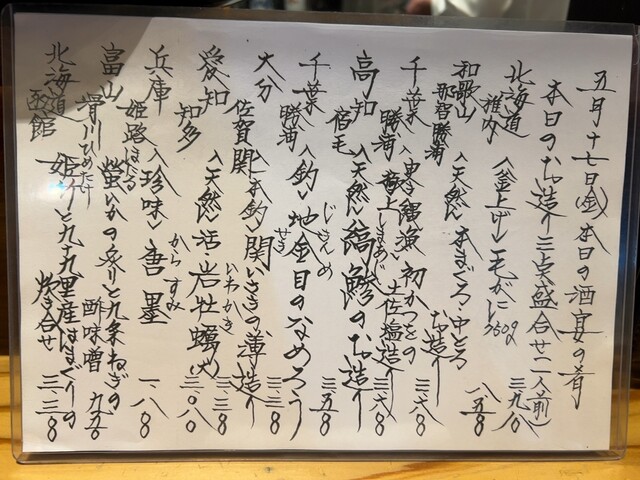 五月十七日(金)本日の酒宴の肴
本日のお造り三点盛合せ(二人前) 三、九八〇
北海道 稚内 〈釜上げ〉毛がに 350g 八、五八〇
和歌山 那智勝浦 〈天然〉本まぐろ・中とろ お造り 三、六八〇
千葉 勝浦 〈曳き縄漁〉初かつをの 藁上 土佐造り 三、六八〇
高知 宿毛 〈天然〉縞鯵のお造り 三、五八〇
千葉 勝浦 〈釣〉地金目のなめろう じきんめ 三、三八〇
大分 佐賀関 〈一本釣〉関いさきの薄造り せき 三、三八〇
愛知 知多 〈天然〉活・岩牡蠣(大) いわかき 三、〇八〇
兵庫 姫路 〈珍味〉唐墨 からすみ 一、八八〇
富山 滑川 ほたる 螢いかの炙りと九条ねぎの 酢味噌 九八〇
北海道 函館 ひめたけ 姫竹と九十九里産はまぐりの 炊き合せ 三、三八〇